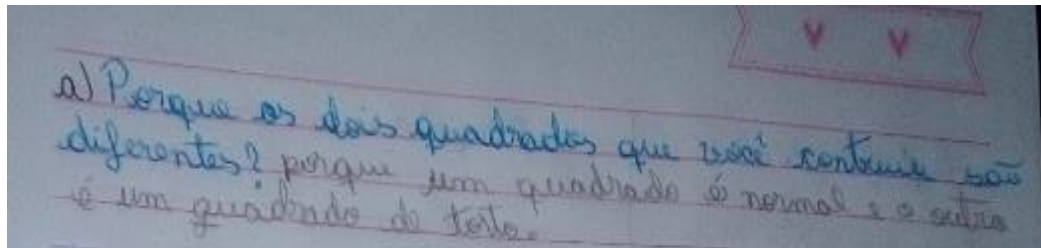 a) Porque os dois quadrados que você contruiu são
diferentes? porque um quadrado é normal e o outro
é um quadrado de torto.